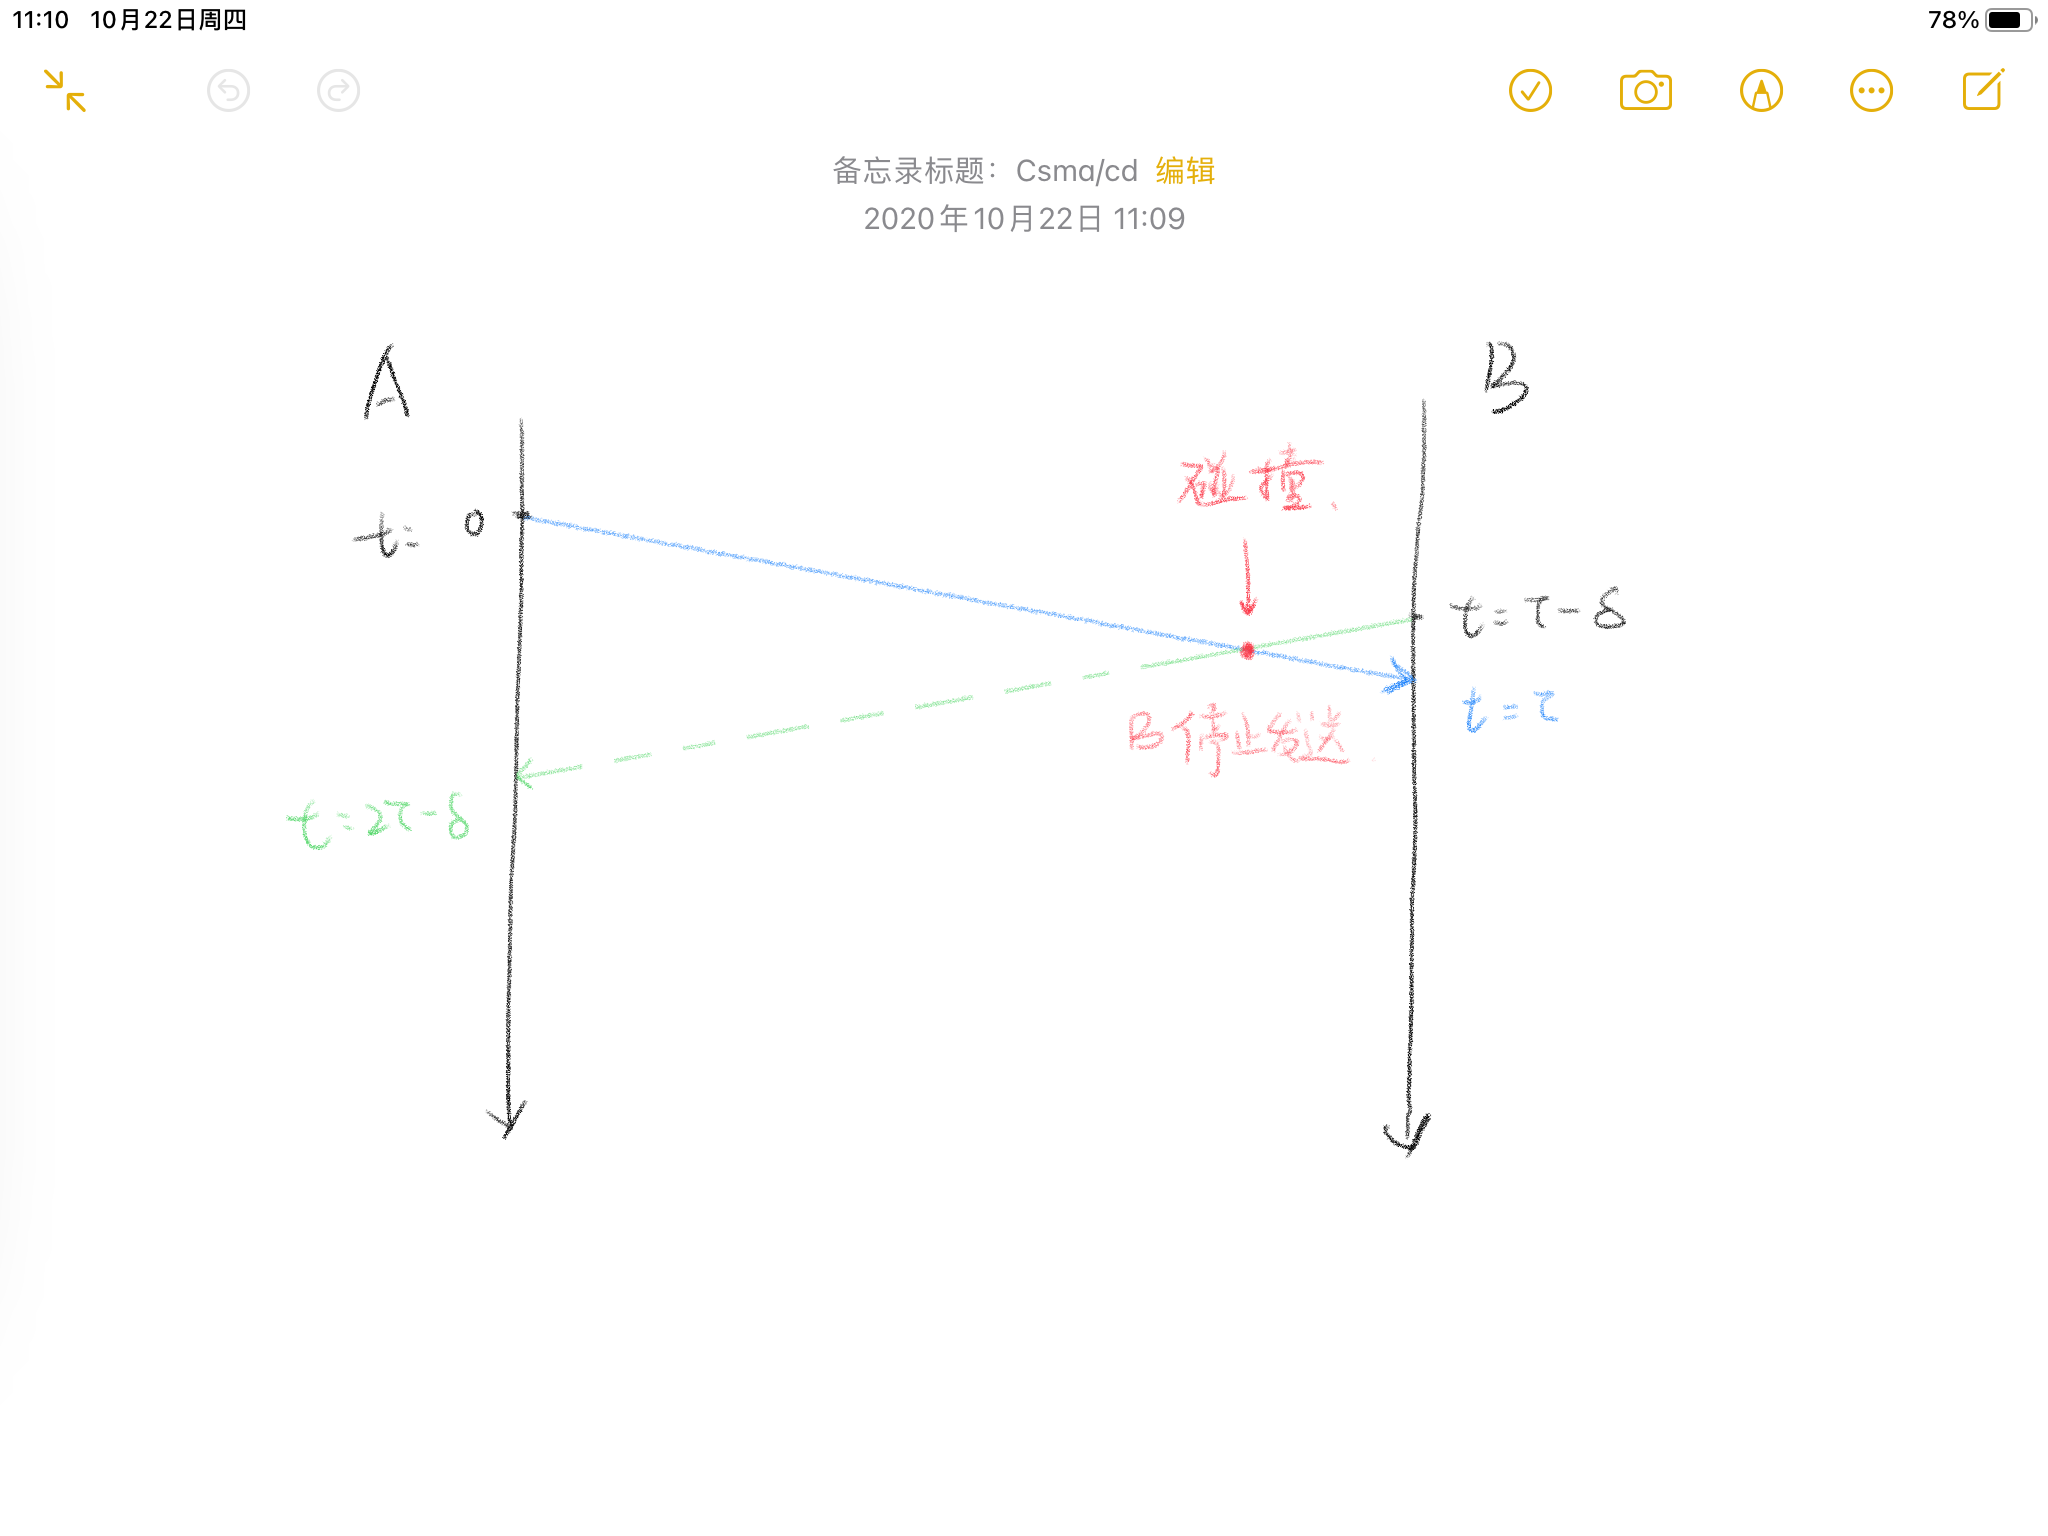 11:10 10月22日周四 78%
备忘录标题：Csma/cd 编辑
2020年10月22日 11:09
A
B
碰撞、
t= 0
t=τ-δ
t=τ
B停止发送
t=2τ-δ